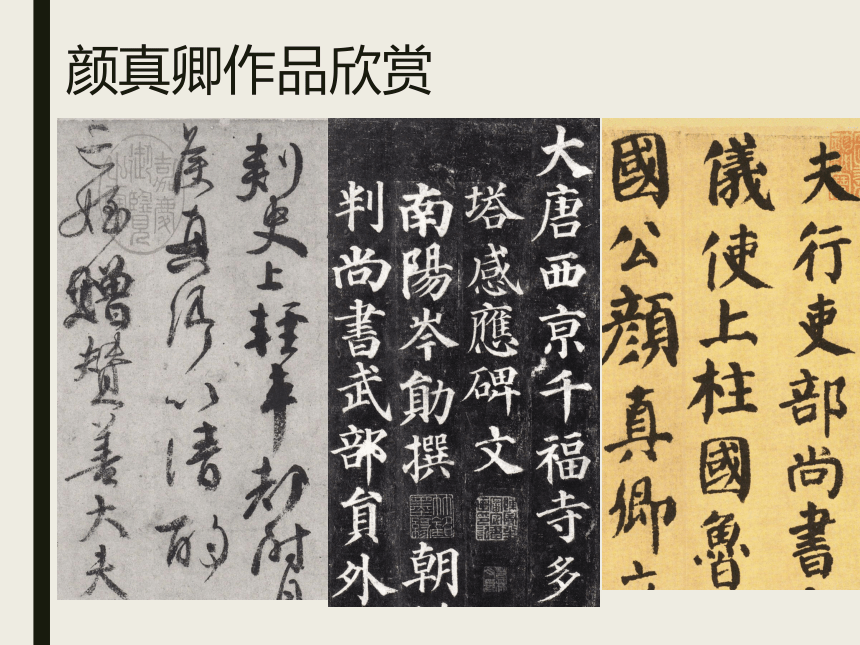 颜真卿作品欣赏
刺史上輕車都尉
侯真卿以清酌
亡姪贈贊善大夫
大唐西京千福寺多
塔感應碑文
南陽岑勛撰 朝
判尚書武部員外
夫行吏部尚書
儀使上柱國魯
國公顏真卿立